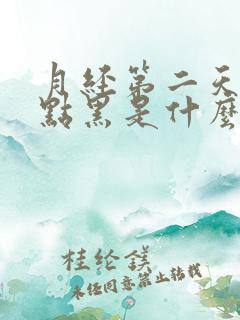 月经第二天
點黑是什麼
桂纶鎂
未经同意禁止转载